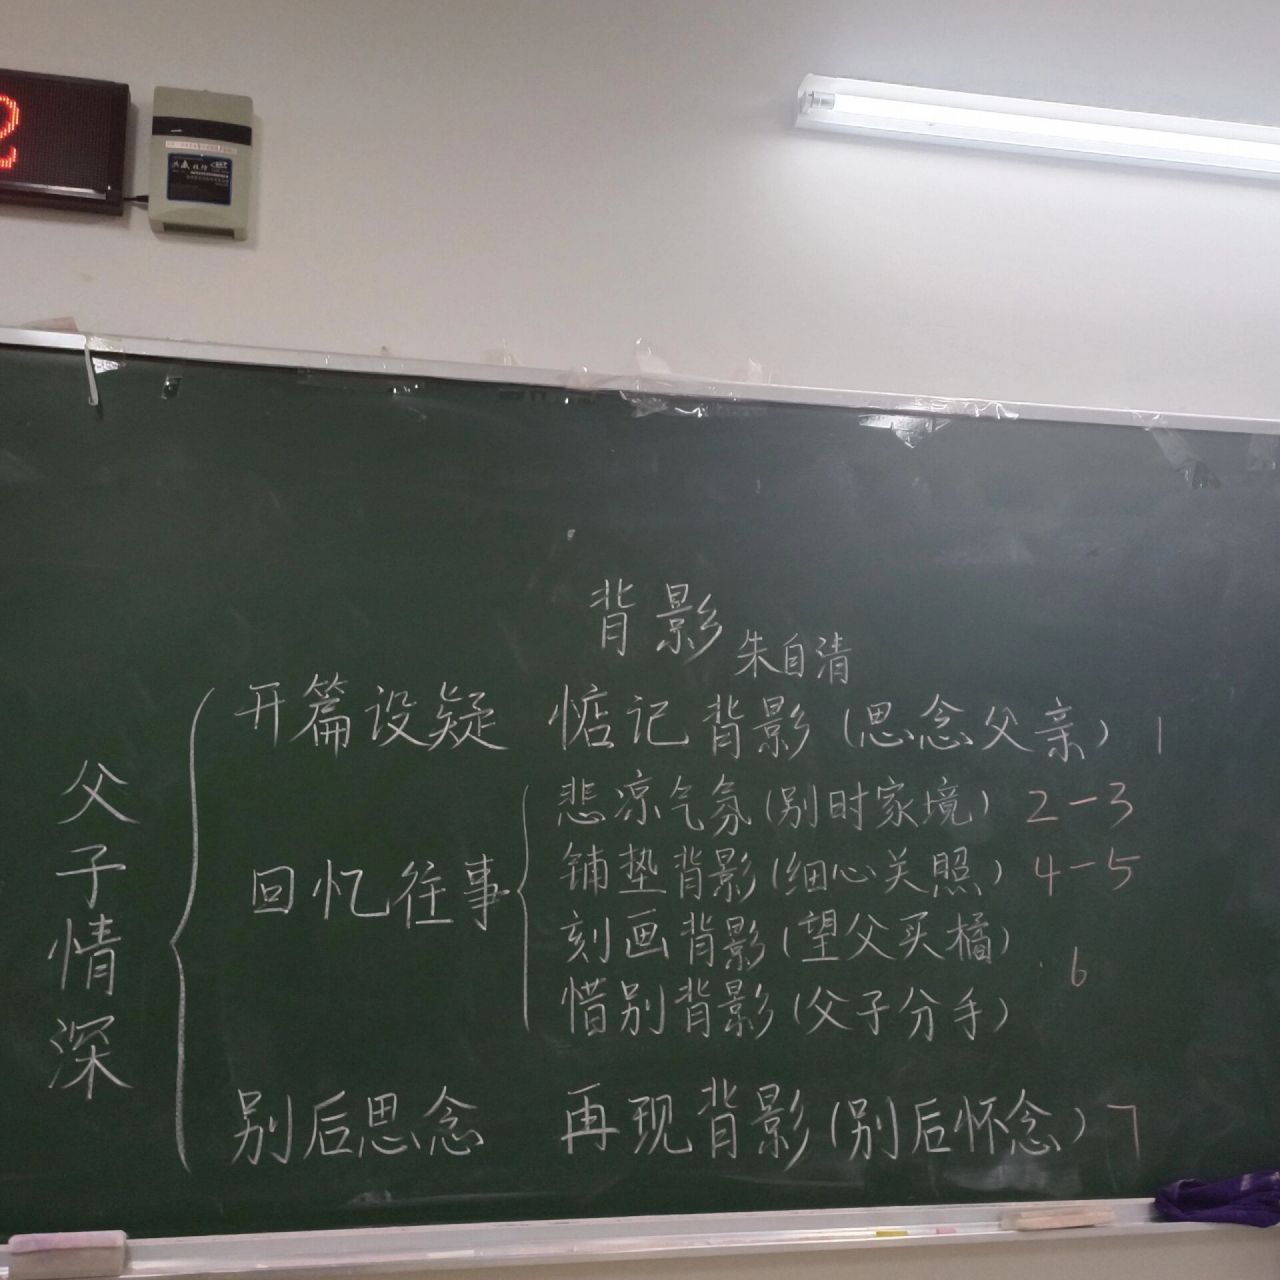 2
背影
朱自清
父子情深
开篇设疑 惦记背影(思念父亲) 1
回忆往事
悲凉气氛(别时家境) 2-3
铺垫背影(细心关照) 4-5
刻画背影(望父买橘)
惜别背影(父子分手) 6
别后思念 再现背影(别后怀念) 7